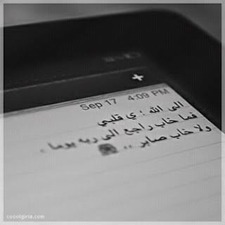 Sep 17 4:09 PM
الى الله ؛ ي قلبي
فما خاب راجع الى ربه يوما ،
ولا خاب صابر ..